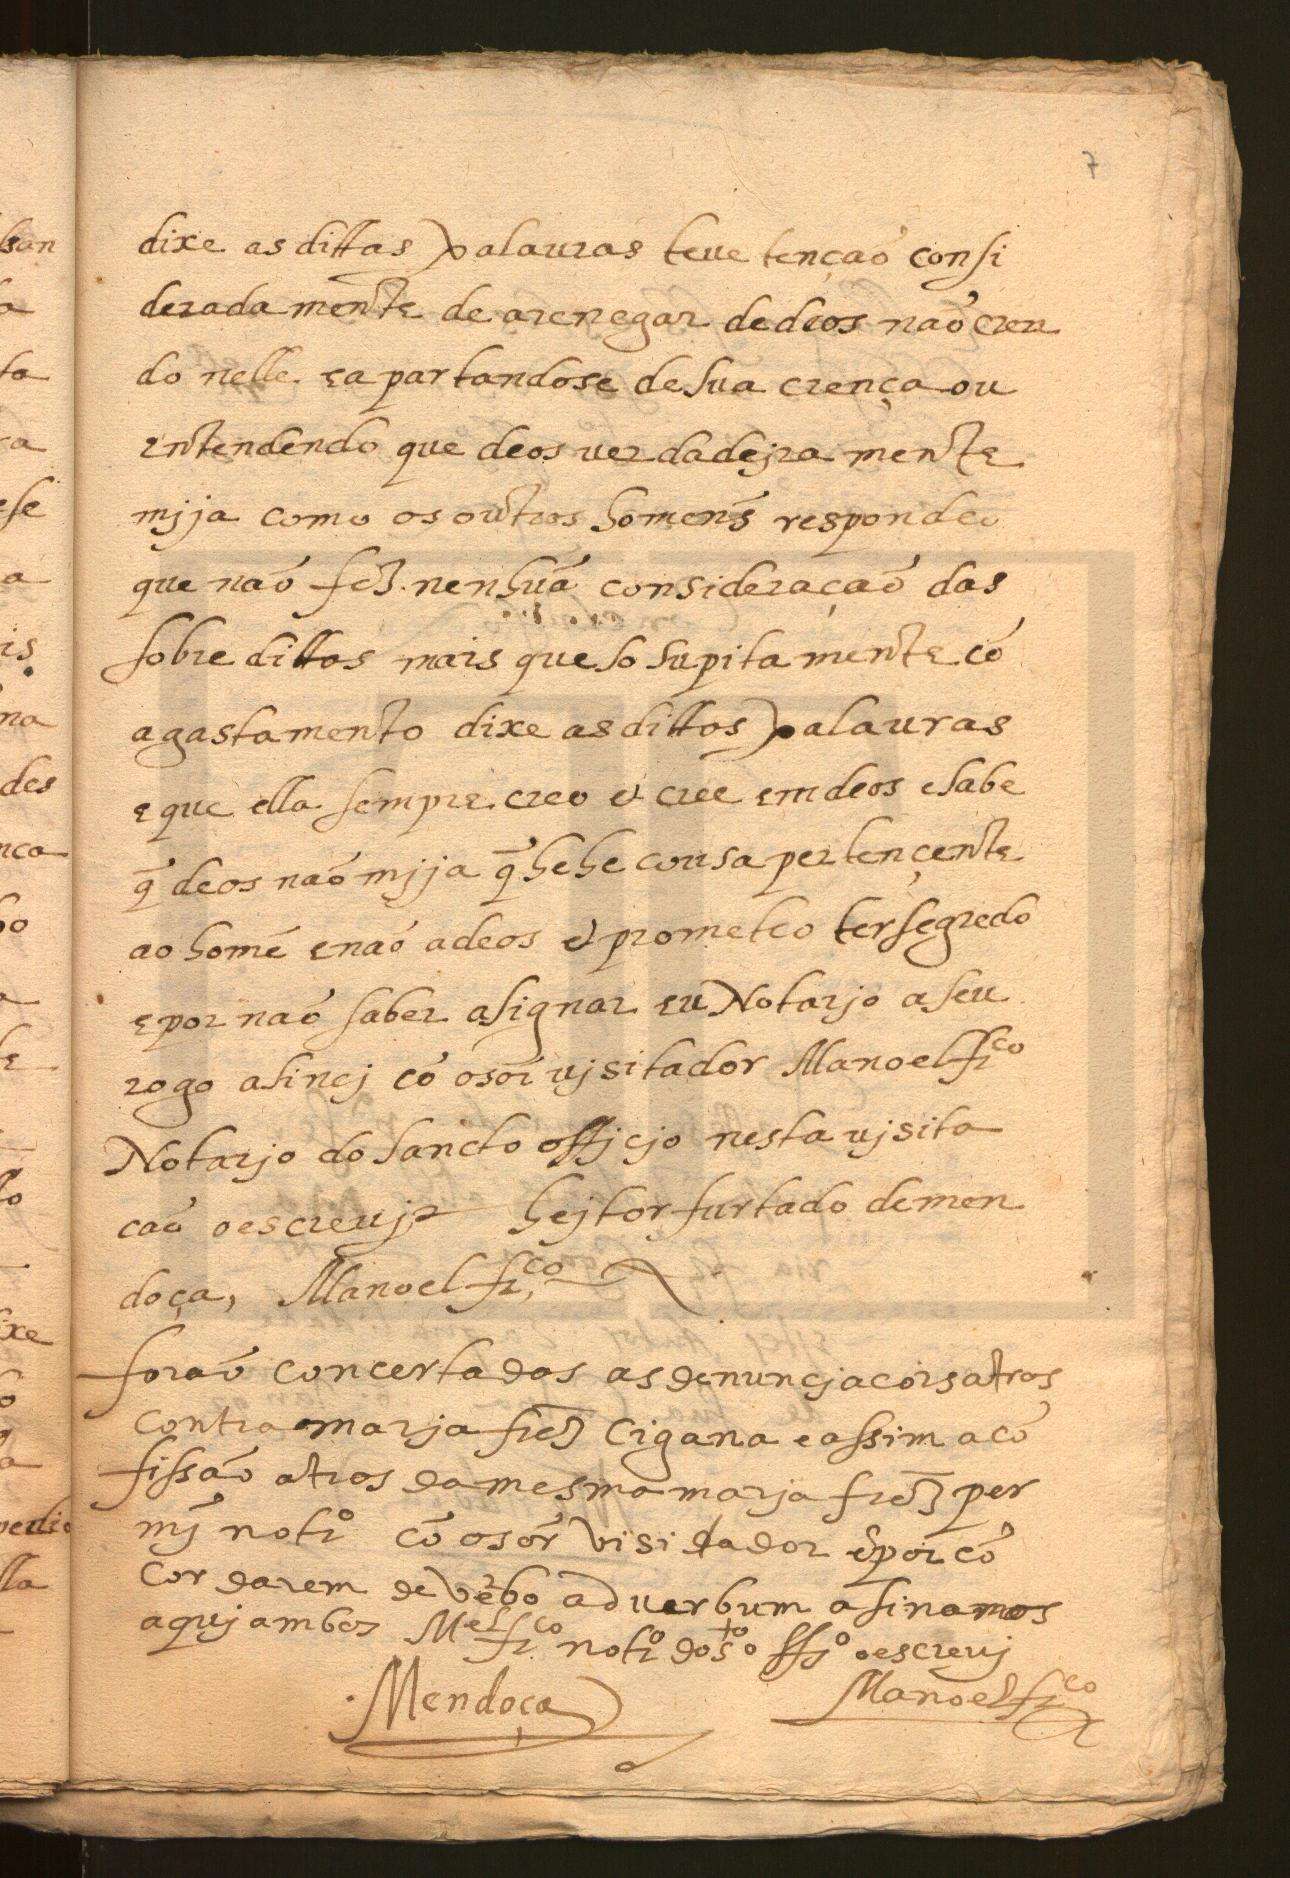 7
dixe as dittas palauras teue tençaõ consi
deradamente de arenegar de deos naõ cren
do nelle. e apartandose de sua crença ou
entendendo que deos uerdadejramente
mijja como os outros homens respondeo
que naõ fez. nenhuã consideraçaõ das
sobre dittas mais que so supitamente cõ
agastamento dixe as dittas palauras
e que ella sempre. creo e cree em deos e sabe
q̃ deos naõ mijja q̃ he he cousa pertençente
ao homẽ e naõ a deos e prometeo ter segredo
e por naõ saber asignar eu Notarjo a seu
rogo asinej cõ o sõr ujsitador Manoel frco
Notarjo do sancto officjo nesta ujsita
caõ o escreuj hejtor furtado de men
doça, Manoel frco,
foraõ concertadas as denuncjacois atras
contra marja frz̃ Cigana e assim a cõ
fissaõ atras da mesma marja frz̃ per
mj̃ notro cõ o sõr visidador e por cõ
cordarem de verbo ad uerbum asinamos
aquj ambos Mel frco notro do sto offo o escreuj
Mendoça Manoel frco
san
a
ta
ca
ese
a
is
na
des
nca
ho
lo
ixe
a
lla